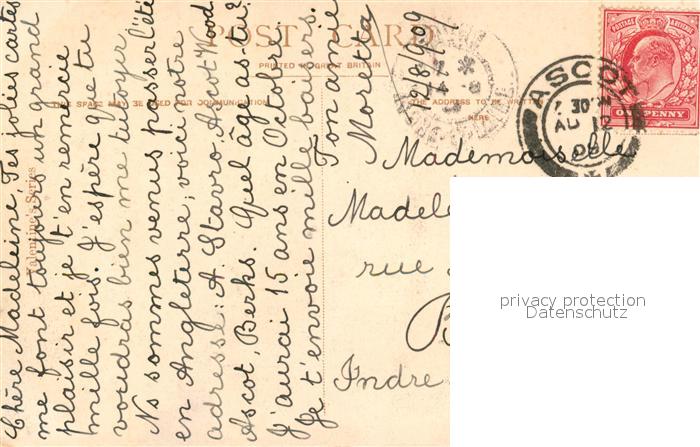 POST CARD
PRINTED IN GREAT BRITAIN
THIS SPACE MAY BE USED FOR COMMUNICATION
THE ADDRESS TO BE WRITTEN
HERE
Valentine's Series
Chère Madeleine, Tes jolies cartes
me font toujours un grand
plaisir et je t'en remercie
mille fois. J'espère que tu
voudras bien me tutoyer.
Ns sommes venus passer l'été
en Angleterre; voici notre
adresse: A Stavro, Ascot Wood
Ascot, Berks. Quel âge as-tu?
J'aurai 15 ans en Octobre.
Je t'envoie mille baisers.
Ton amie
Moretta
12/8/909
POSTAGE REVENUE
ONE PENNY
ASCOT
7 30 PM
AU 12
09
Mademoiselle
Madele
rue
B
Indre
privacy protection
Datenschutz